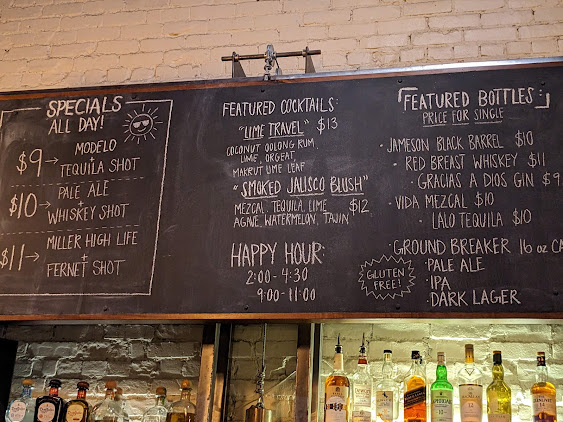 SPECIALS
ALL DAY!
$9 → MODELO
+
TEQUILA SHOT
$10 → PALE ALE
+
WHISKEY SHOT
$11 → MILLER HIGH LIFE
+
FERNET SHOT
FEATURED COCKTAILS:
"LIME TRAVEL" $13
COCONUT OOLONG RUM,
LIME, ORGEAT,
MAKRUT LIME LEAF
"SMOKED JALISCO BLUSH"
MEZCAL, TEQUILA, LIME $12
AGAVE, WATERMELON, TAJIN
HAPPY HOUR:
2:00 - 4:30
9:00 - 11:00
FEATURED BOTTLES
PRICE FOR SINGLE
· JAMESON BLACK BARREL $10
· RED BREAST WHISKEY $11
· GRACIAS A DIOS GIN $9
· VIDA MEZCAL $10
· LALO TEQUILA $10
· GROUND BREAKER 16 oz CA
GLUTEN FREE!
· PALE ALE
· IPA
· DARK LAGER